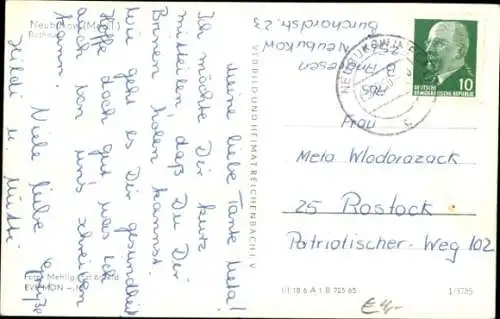 Neubukow (Meckl.)
Rathaus
Meine liebe Tante Meta!
Ich möchte Dir kurz
mitteilen, daß Du Dir
Birnen holen kannst.
Wie geht es Dir gesundheitlich
Hoffe doch gut was ich
auch von uns schreiben
kann.
Viele liebe Grüße
Heidi u. Mutti
Foto: Mehlig,
EVP MDN
VERLAG BILD UND HEIMAT REICHENBACH I. V.
Abs.
Neubukow
Burchardstr. 23
NEUBUKOW
10
DEUTSCHE
DEMOKRATISCHE REPUBLIK
Frau
Meta Wlodarazack
25 Rostock
Patriotischer-Weg 102
III 18 6 A 1 B 725 65
1/3755
€ 4,-